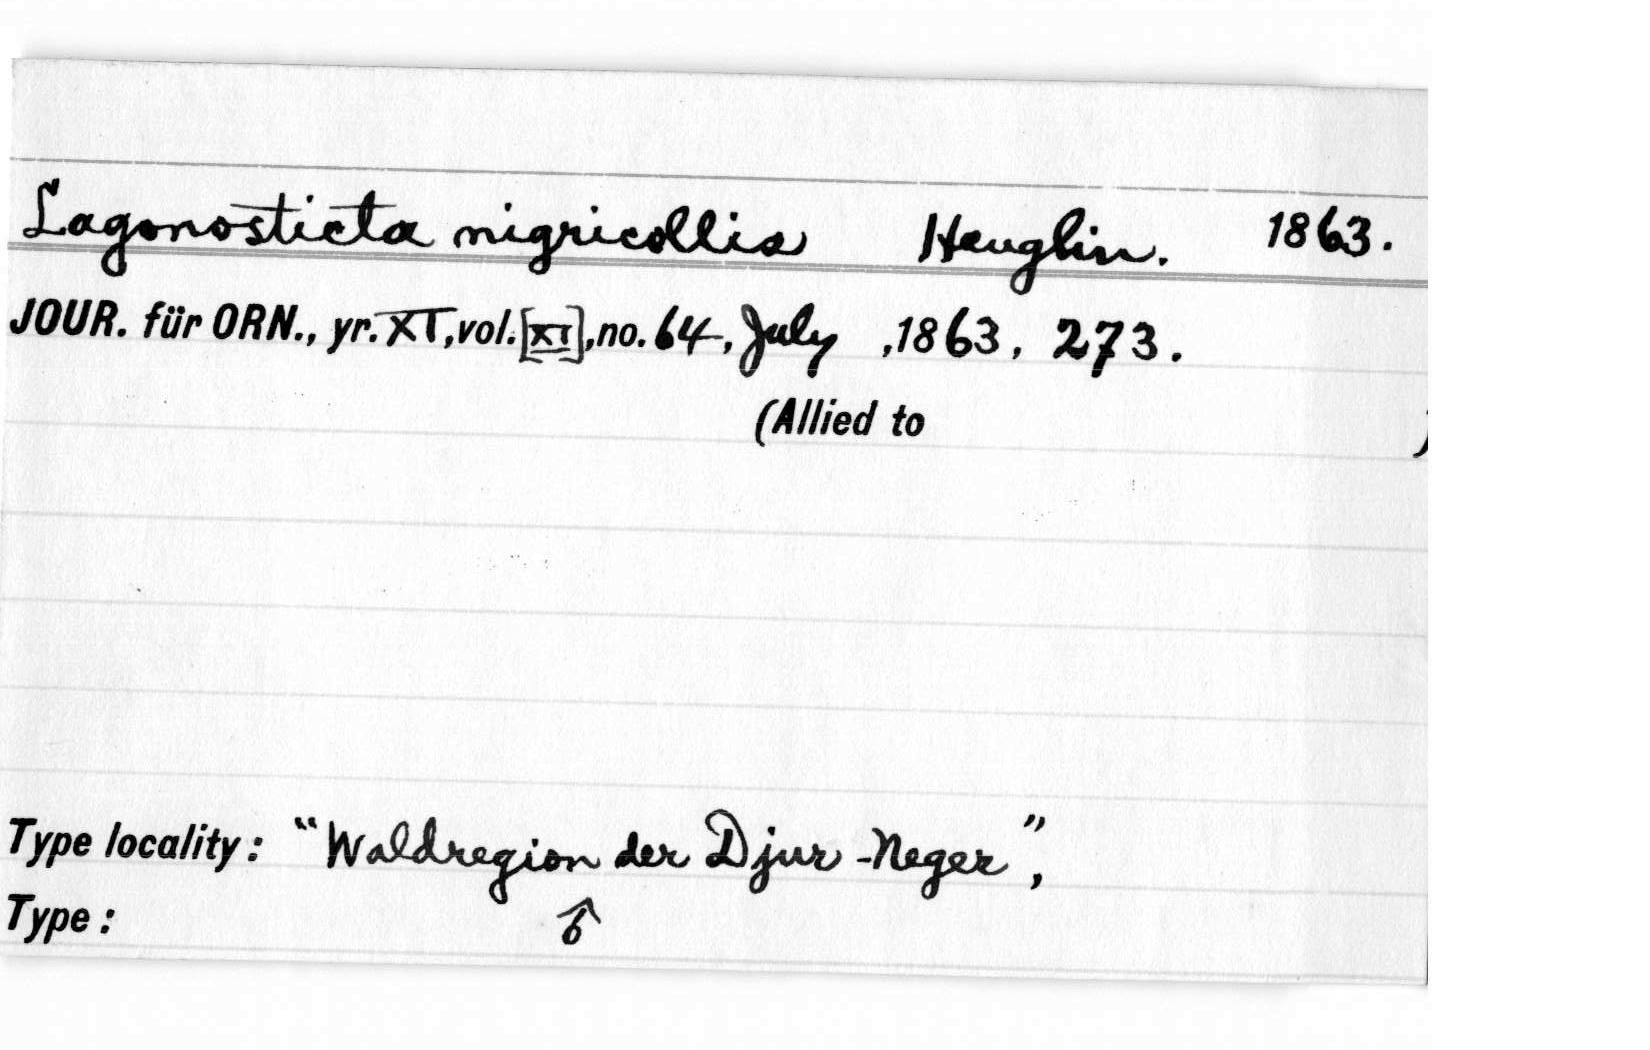 Lagonosticta nigricollis Heuglin. 1863.
JOUR. für ORN., yr. XI, vol. [XI], no. 64, July , 1863, 273.
(Allied to )
Type locality: "Waldregion der Djur-Neger",
Type: ♂